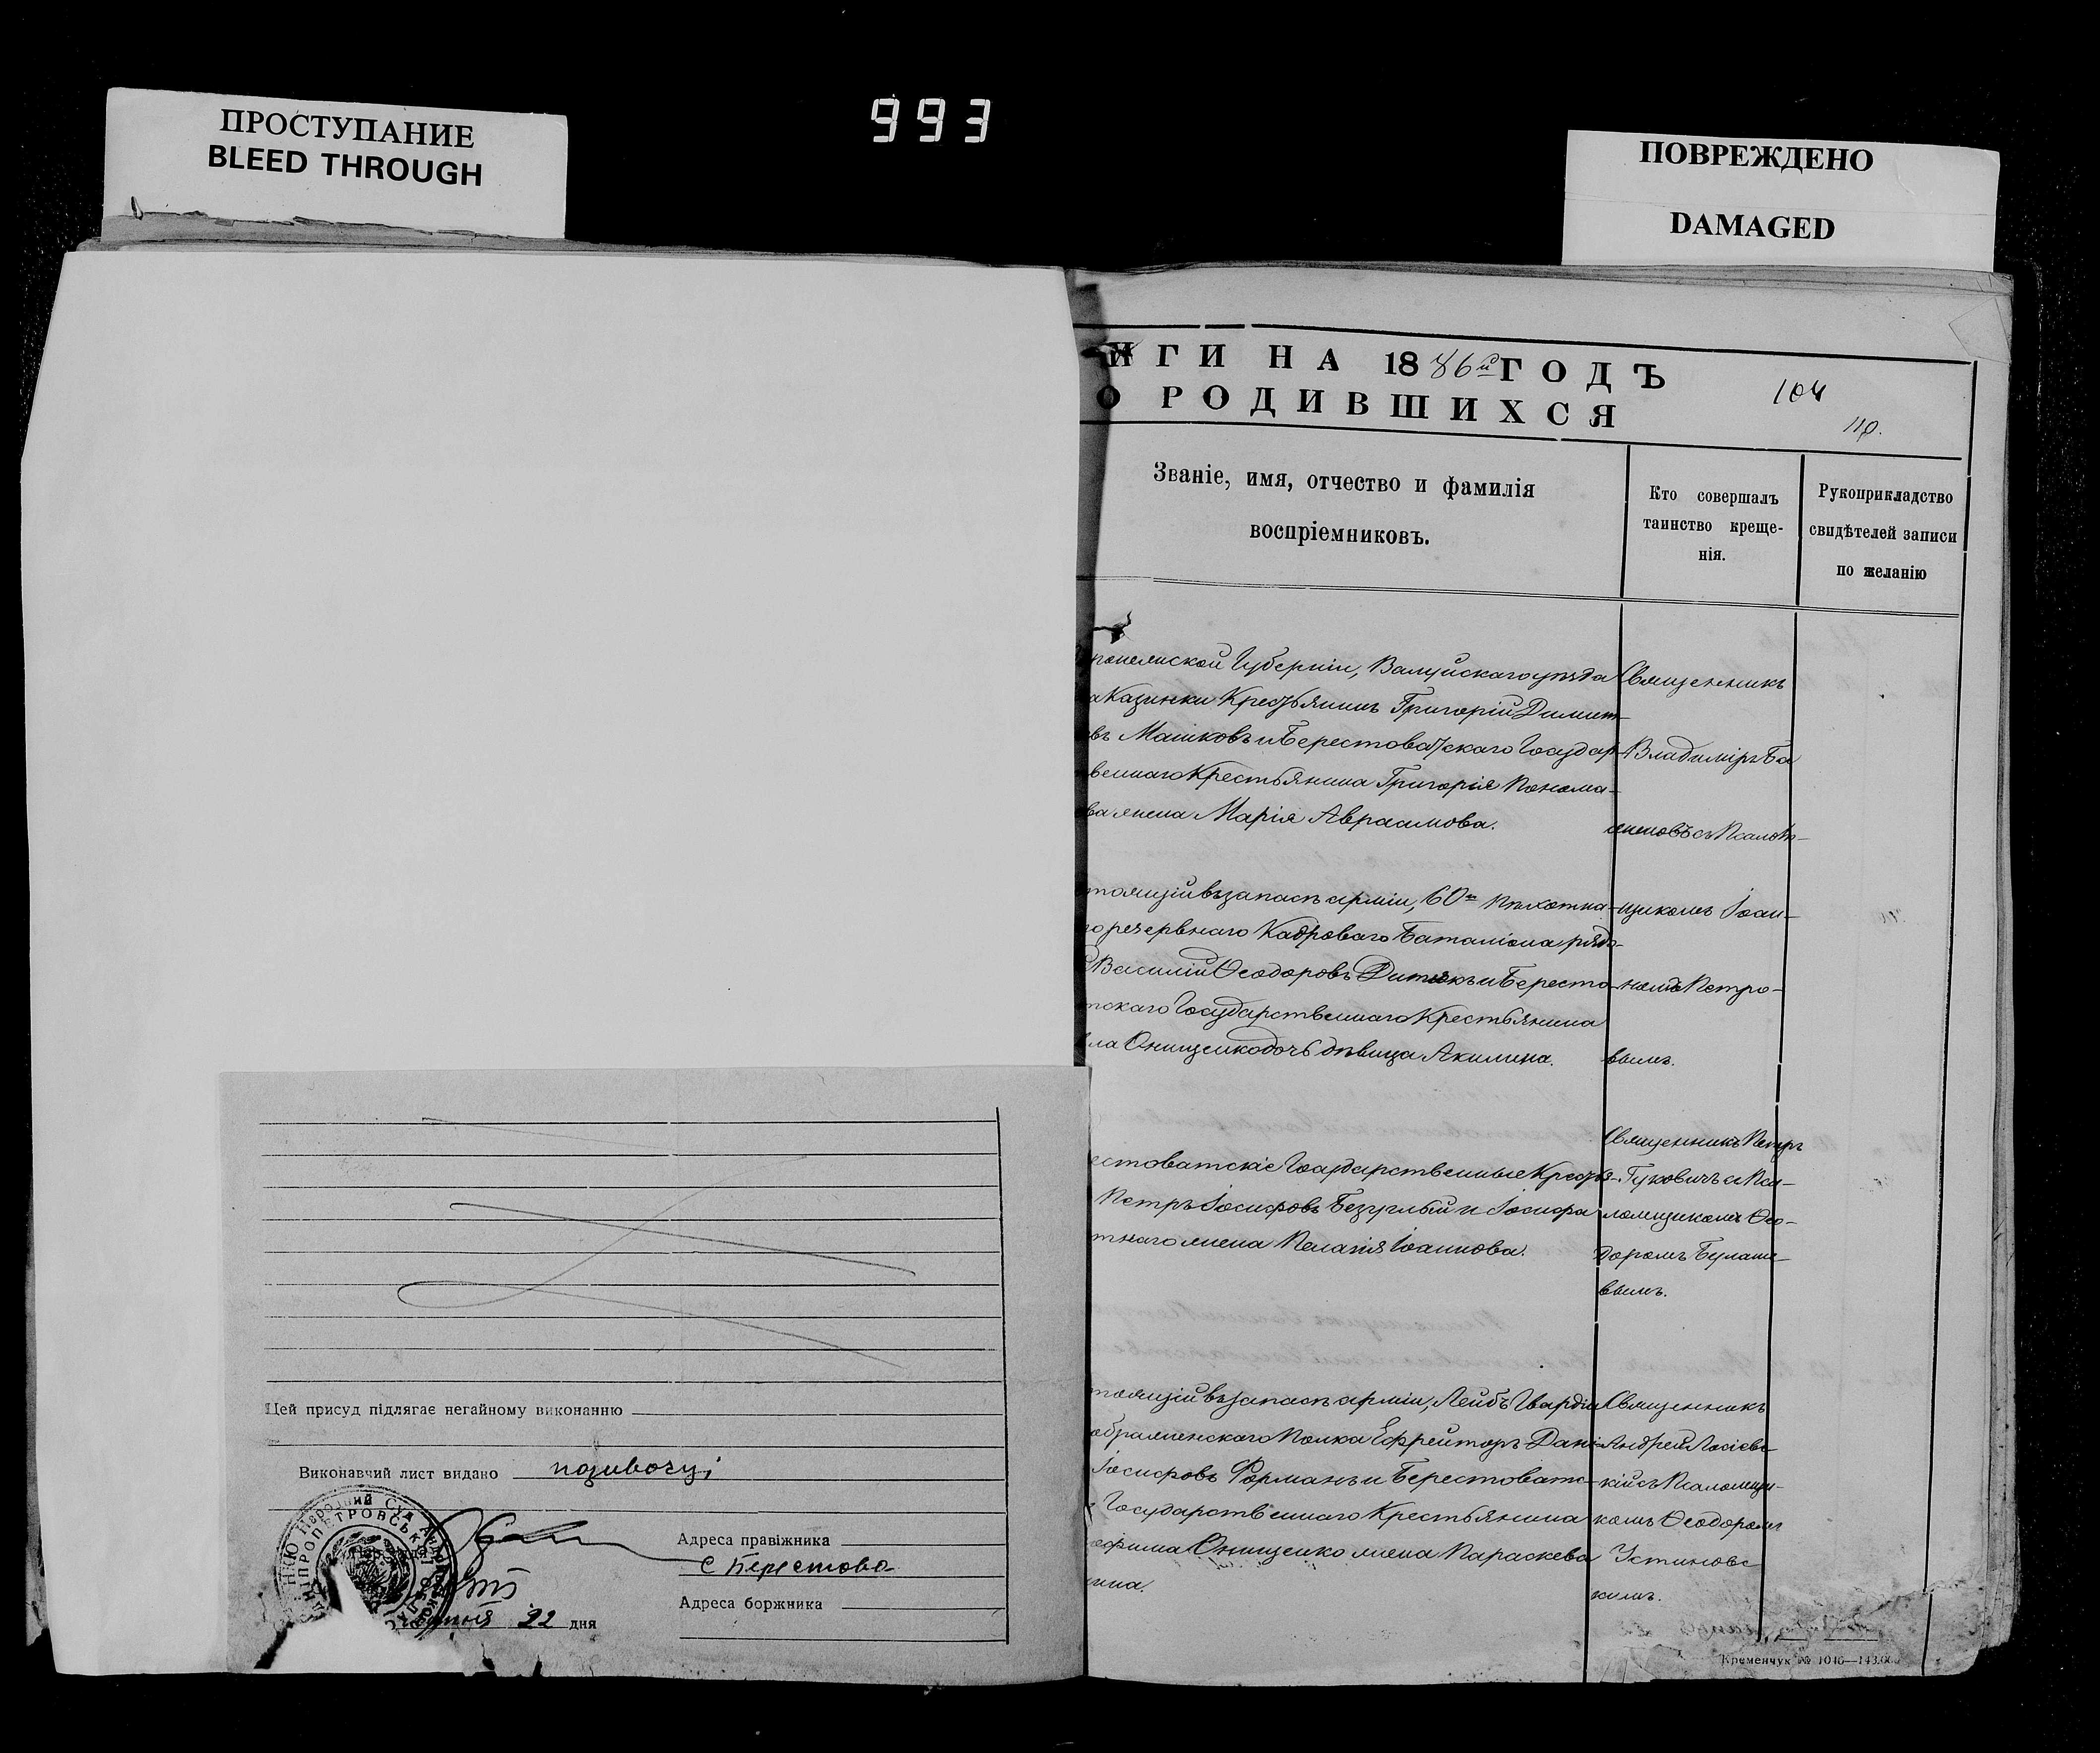 ПРОСТУПАНИЕ
BLEED THROUGH
993
ПОВРЕЖДЕНО
DAMAGED
ИГИ НА 1886й ГОДЪ
О РОДИВШИХСЯ
104
110.
Званіе, имя, отчество и фамилія
воспріемниковъ.
Кто совершалъ
таинство креще-
нія.
Рукоприкладство
свидѣтелей записи
по желанію
Губерніи, Валуйскаго уѣзда
Казинки Крестьянинъ Григорій Димит-
въ Машковъ и Берестоватскаго Государ-
веннаго Крестьянина Григорія Понома-
ва жена Марія Авраамова.
Священникъ
Владиміръ Ба
женовъ съ Псалом-
щикомъ Іоан-
номъ Петро-
вымъ.
тоящій въ запасѣ арміи, 60го Пѣхотна-
го резервнаго Кадроваго Баталіона рядо-
Василій Ѳеодоровъ и Бересто-
тскаго Государственнаго Крестьянина
ла Онищенко дочь дѣвица Акилина.
естоватскіе Государственные Крестья-
Петръ Іосифовъ Безуглый и Іосифа
жена Пелагія Іоаннова.
Священникъ Петръ
Гуковичъ съ Пса-
ломщикомъ Ѳео-
доромъ Булаше
вымъ.
тоящій въ запасѣ арміи, Лейбъ Гвардіи
ображенскаго Полка Ефрейторъ Дані-
Іосифовъ Форманъ и Берестоватс-
Государственнаго Крестьянина
фима Онищенко жена Параскева
ина.
Священникъ
Андрей
кій съ Псаломщи-
комъ Ѳеодоромъ
Устиновс
кимъ.
Цей присуд підлягає негайному виконанню
Виконавчий лист видано позивачці
Народний Суд
ДНІПРОПЕТРОВСЬКОЇ
Адреса правіжника
с Берестова
Адреса боржника
22 дня
Кременчук № 1046—143.00